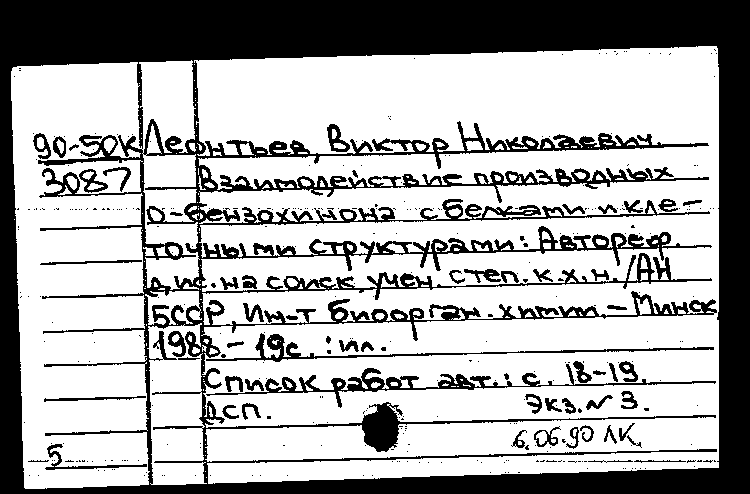 90-50К Леонтьев, Виктор Николаевич.
3087 Взаимодействие производных
о-бензохинона с белками и кле-
точными структурами: Автореф.
дис. на соиск. учен. степ. к.х.н. /АН
БССР, Ин-т биоорган. химии. - Минск,
1988. - 19с. : ил.
Список работ авт.: с. 18-19.
ДСП. Экз. N 3.
5 6.06.90 ЛК.